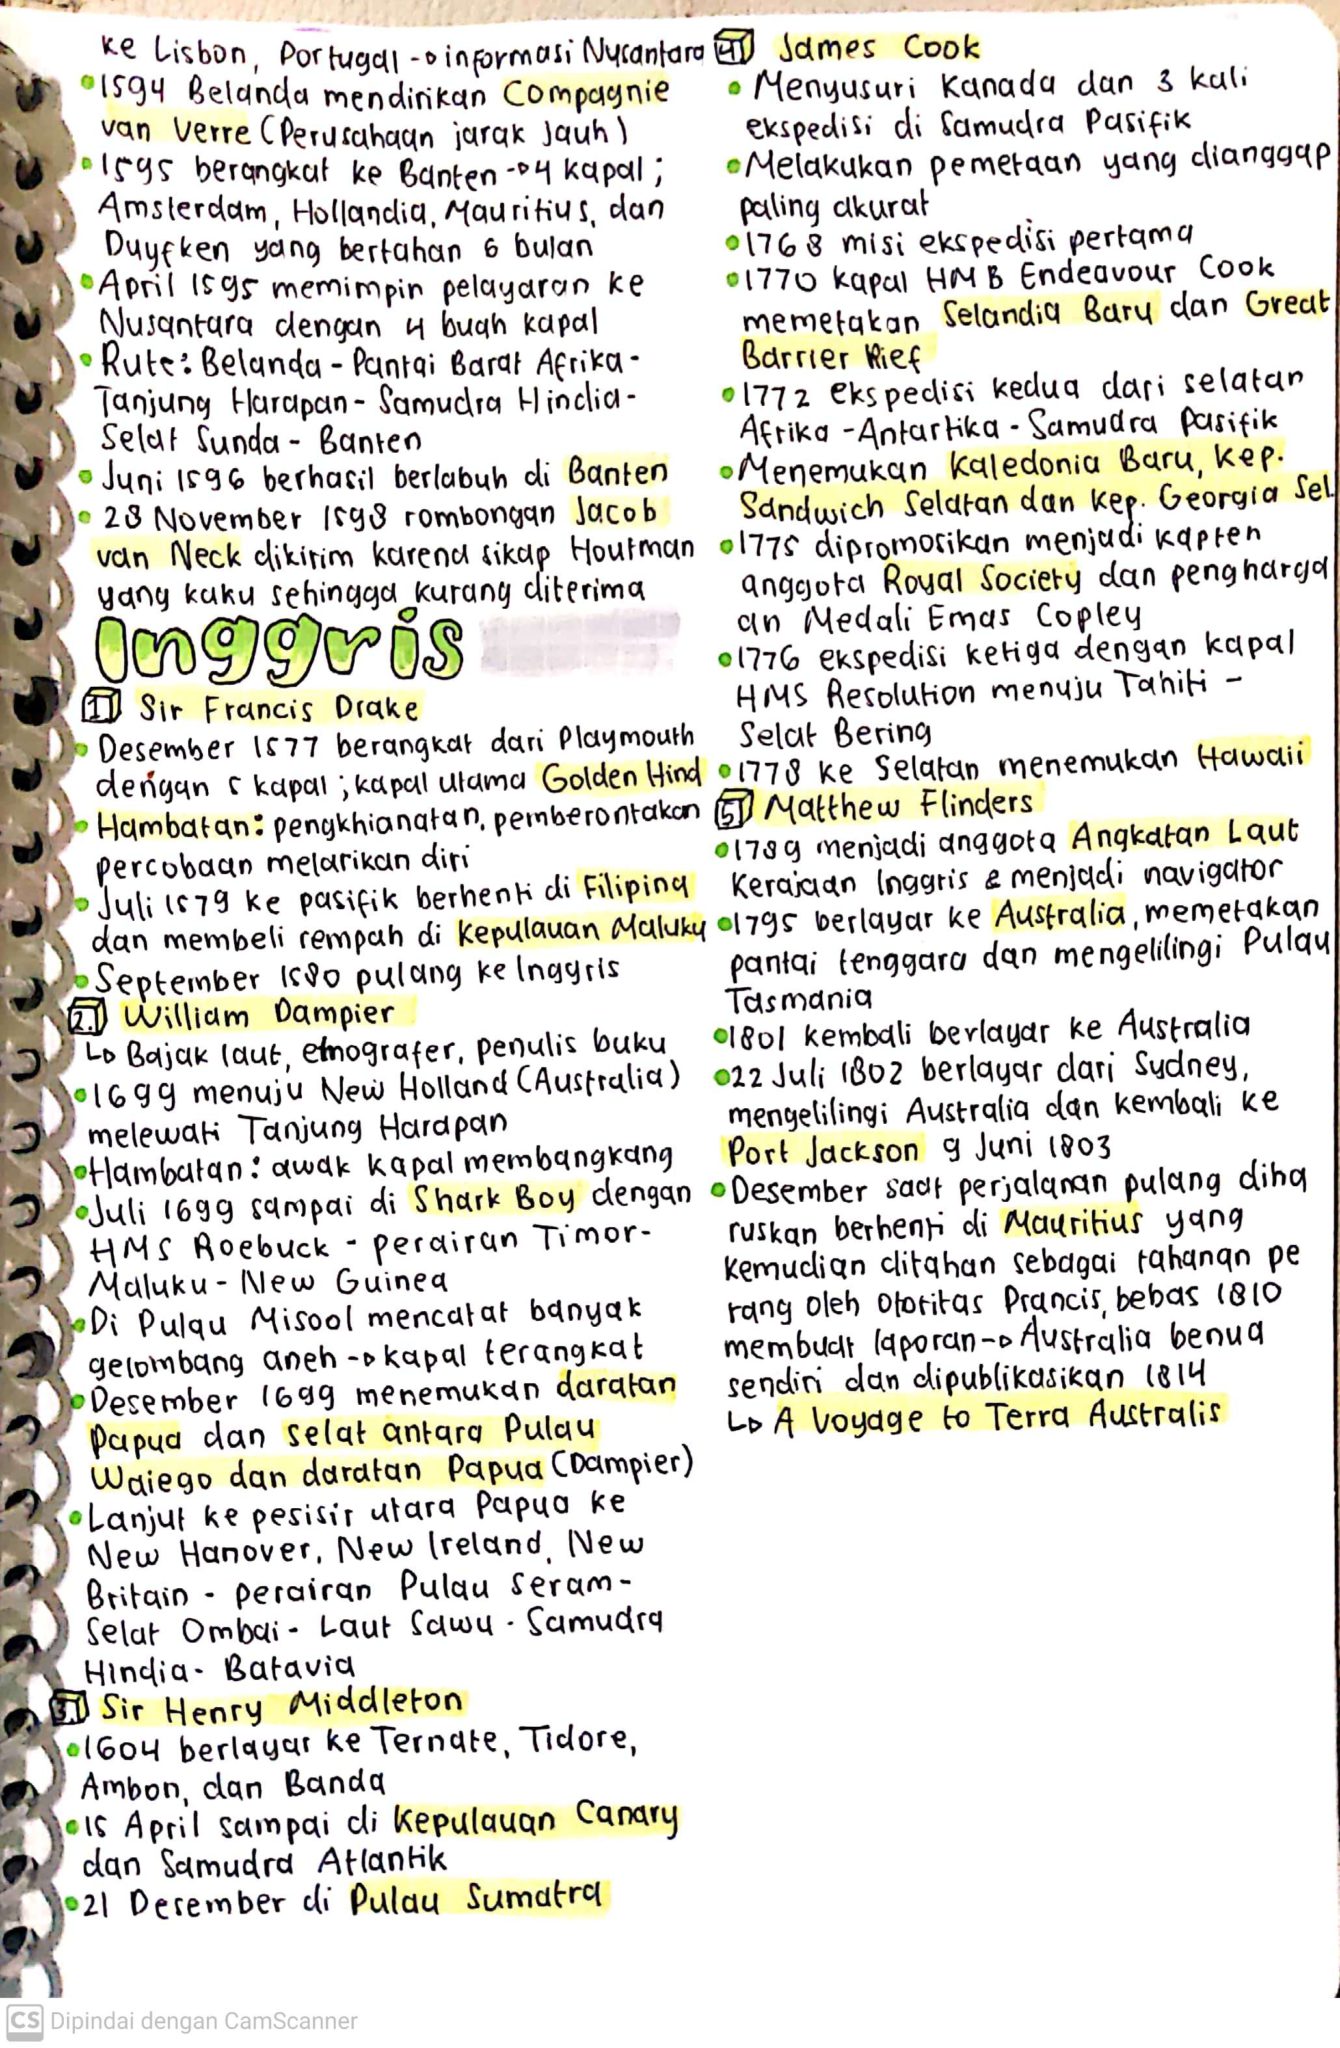 ke Lisbon, Portugal → informasi Nusantara
• 1594 Belanda mendirikan Compagnie
van Verre (Perusahaan jarak Jauh)
• 1595 berangkat ke Banten → 4 kapal ;
Amsterdam, Hollandia, Mauritius, dan
Duyfken yang bertahan 6 bulan
• April 1595 memimpin pelayaran ke
Nusantara dengan 4 buah kapal
• Rute: Belanda - Pantai Barat Afrika -
Tanjung Harapan - Samudra Hindia -
Selat Sunda - Banten
• Juni 1596 berhasil berlabuh di Banten
• 28 November 1598 rombongan Jacob
van Neck dikirim karena sikap Houtman
yang kaku sehingga kurang diterima
Inggris
1. Sir Francis Drake
• Desember 1577 berangkat dari Playmouth
dengan 5 kapal ; kapal utama Golden Hind
• Hambatan: pengkhianatan, pemberontakan
percobaan melarikan diri
• Juli 1579 ke pasifik berhenti di Filipina
dan membeli rempah di Kepulauan Maluku
• September 1580 pulang ke Inggris
2. William Dampier
↳ Bajak laut, etnografer, penulis buku
• 1699 menuju New Holland (Australia)
melewati Tanjung Harapan
• Hambatan: awak kapal membangkang
• Juli 1699 sampai di Shark Boy dengan
HMS Roebuck - perairan Timor-
Maluku - New Guinea
• Di Pulau Misool mencatat banyak
gelombang aneh → kapal terangkat
• Desember 1699 menemukan daratan
Papua dan selat antara Pulau
Waiego dan daratan Papua (Dampier)
• Lanjut ke pesisir utara Papua ke
New Hanover, New Ireland, New
Britain - perairan Pulau Seram -
Selat Ombai - Laut Sawu - Samudra
Hindia - Batavia
3. Sir Henry Middleton
• 1604 berlayar ke Ternate, Tidore,
Ambon, dan Banda
• 15 April sampai di Kepulauan Canary
dan Samudra Atlantik
• 21 Desember di Pulau Sumatra
4. James Cook
• Menyusuri Kanada dan 3 kali
ekspedisi di Samudra Pasifik
• Melakukan pemetaan yang dianggap
paling akurat
• 1768 misi ekspedisi pertama
• 1770 kapal HMB Endeavour Cook
memetakan Selandia Baru dan Great
Barrier Rief
• 1772 ekspedisi kedua dari selatan
Afrika - Antartika - Samudra Pasifik
• Menemukan Kaledonia Baru, Kep.
Sandwich Selatan dan Kep. Georgia Sel.
• 1775 dipromosikan menjadi kapten
anggota Royal Society dan pengharga
an Medali Emas Copley
• 1776 ekspedisi ketiga dengan kapal
HMS Resolution menuju Tahiti -
Selat Bering
• 1778 ke Selatan menemukan Hawaii
5. Matthew Flinders
• 1789 menjadi anggota Angkatan Laut
Kerajaan Inggris & menjadi navigator
• 1795 berlayar ke Australia, memetakan
pantai tenggara dan mengelilingi Pulau
Tasmania
• 1801 kembali berlayar ke Australia
• 22 Juli 1802 berlayar dari Sydney,
mengelilingi Australia dan kembali ke
Port Jackson 9 Juni 1803
• Desember saat perjalanan pulang diha
ruskan berhenti di Mauritius yang
kemudian ditahan sebagai tahanan pe
rang oleh otoritas Prancis, bebas 1810
membuat laporan → Australia benua
sendiri dan dipublikasikan 1814
↳ A Voyage to Terra Australis
CS Dipindai dengan CamScanner